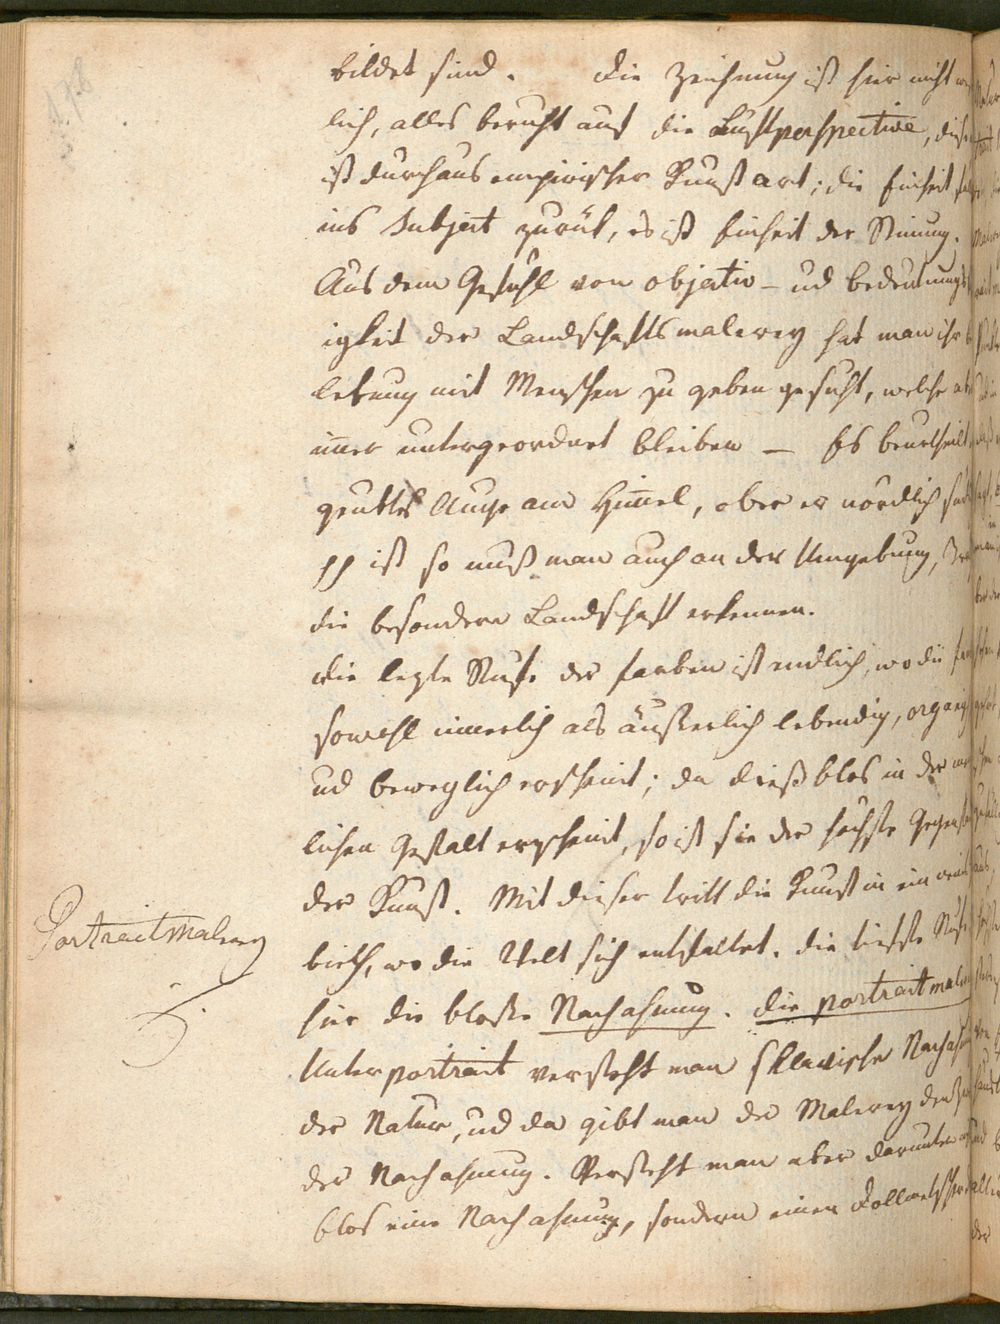 bildet sind. Die Zeichnung ist hier nicht
lich, alles beruht auf die Luftperspective, diese
ist durchaus empirischer Kunstart; die Einheit
ins Subject zurük, es ist Einheit der Stimung.
Aus dem Gefühl von objectiv – ud bedeutungs
igkeit der Landschaftsmalerey hat man ihr
lebung mit Menschen zu geben gesucht, welche
im̅er untergeordnet bleiben — Es beurtheilt
geübtes Auge am Him̅el, ober er nördlich
ist so muß man auch an der Umgebung,
die besondere Landschaft erkennen.
Die lezte Stufe der Farben ist endlich, wo die
sowohl innerlich als äußerlich lebendig, organisch
ud beweglich erscheint; da dieß blos in der
lichen Gestalt erscheint, so ist sie der höchste
der Kunst. Mit dieser tritt die Kunst in ein
bieth, wo die Welt sich entfaltet. Die tiefste Stufe
hier die bloße Nachahmung. Die portraitmalerey
Unter portrait versteht man sklavische
der Natur, ud da gibt man der Malerey den
der Nachahmung. Versteht man aber darunter
blos eine Nachahmung, sondern einen
Portraitmalerey